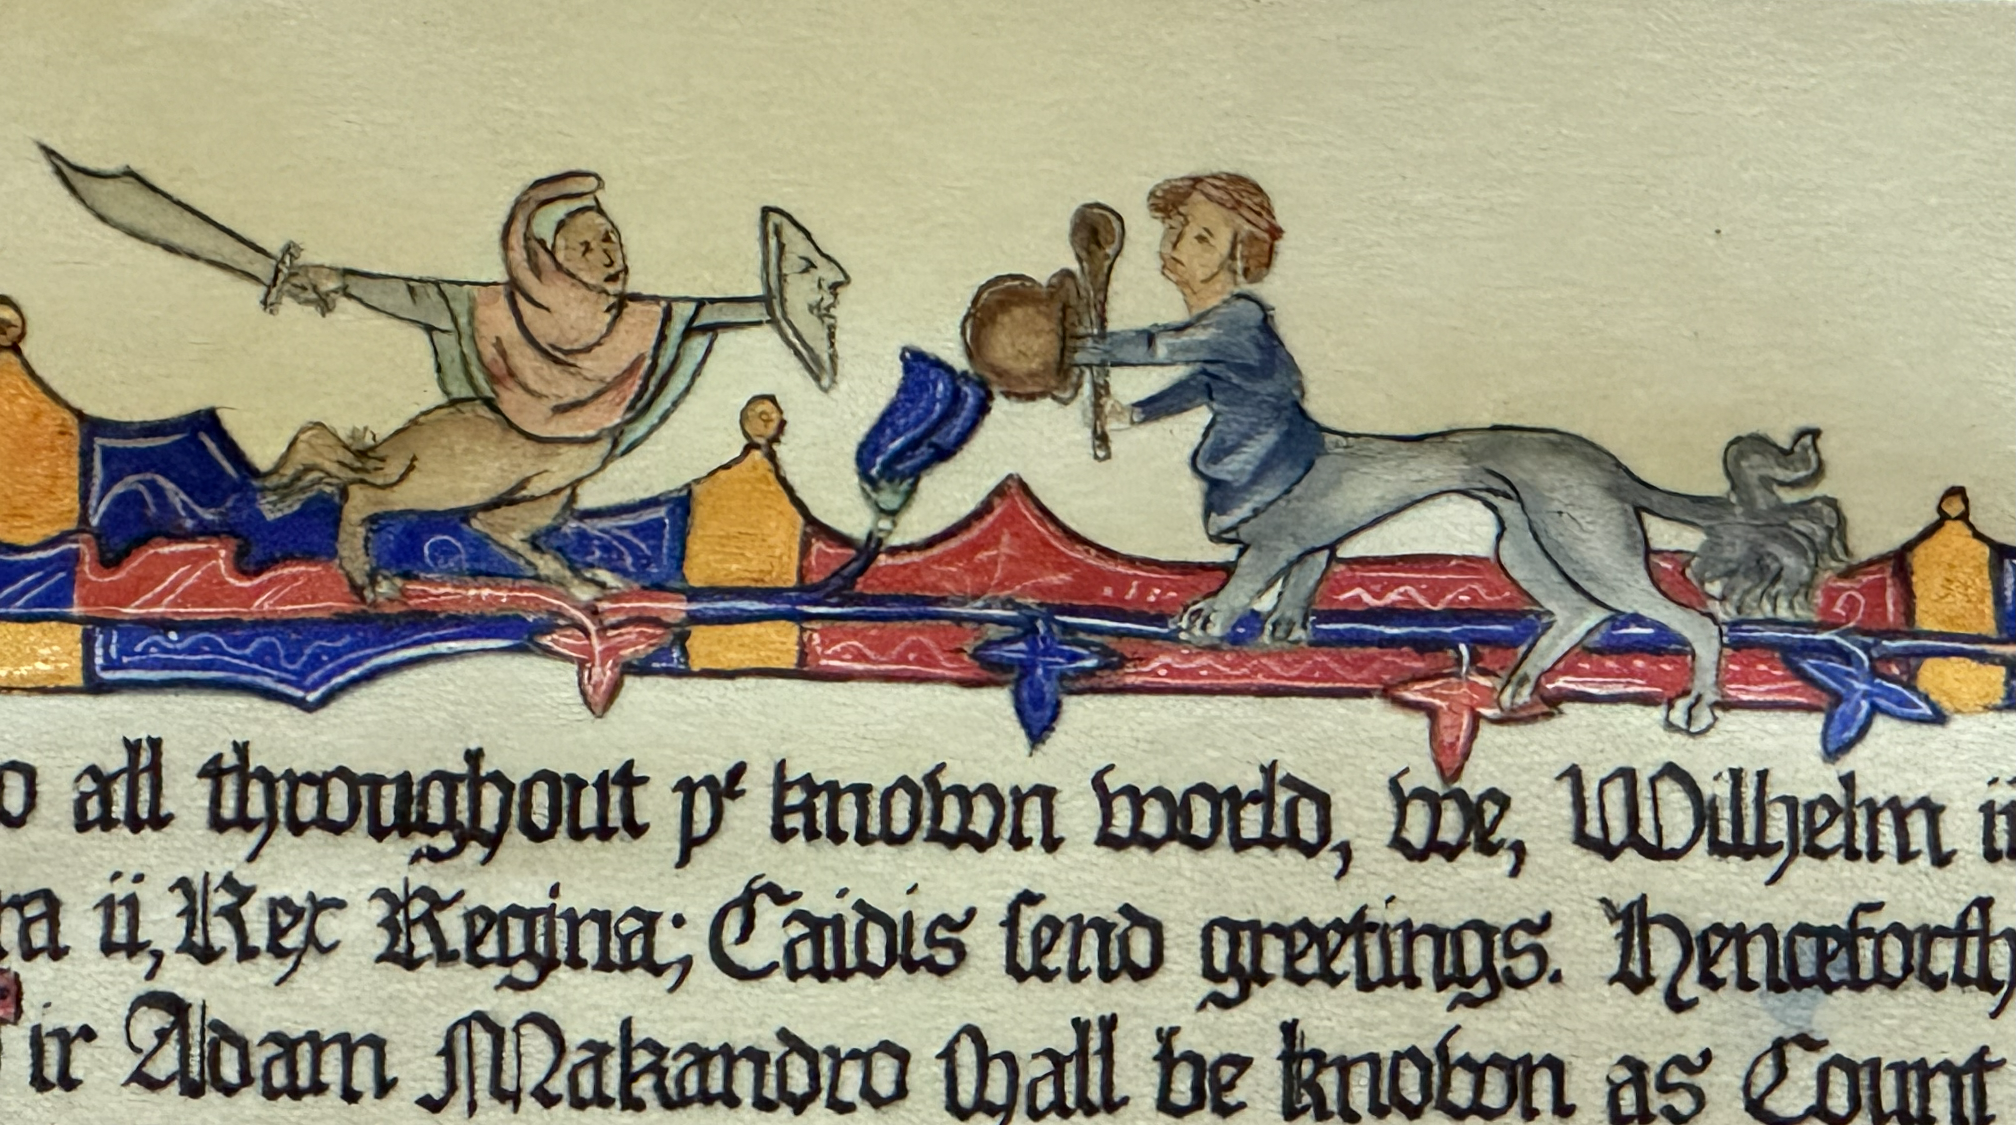 o all throughout þᵉ known world, we, Wilhelm ii
ra ii, Rex Regina; Caidis send greetings. Henceforth
Sir Adam Makandro shall be known as Count